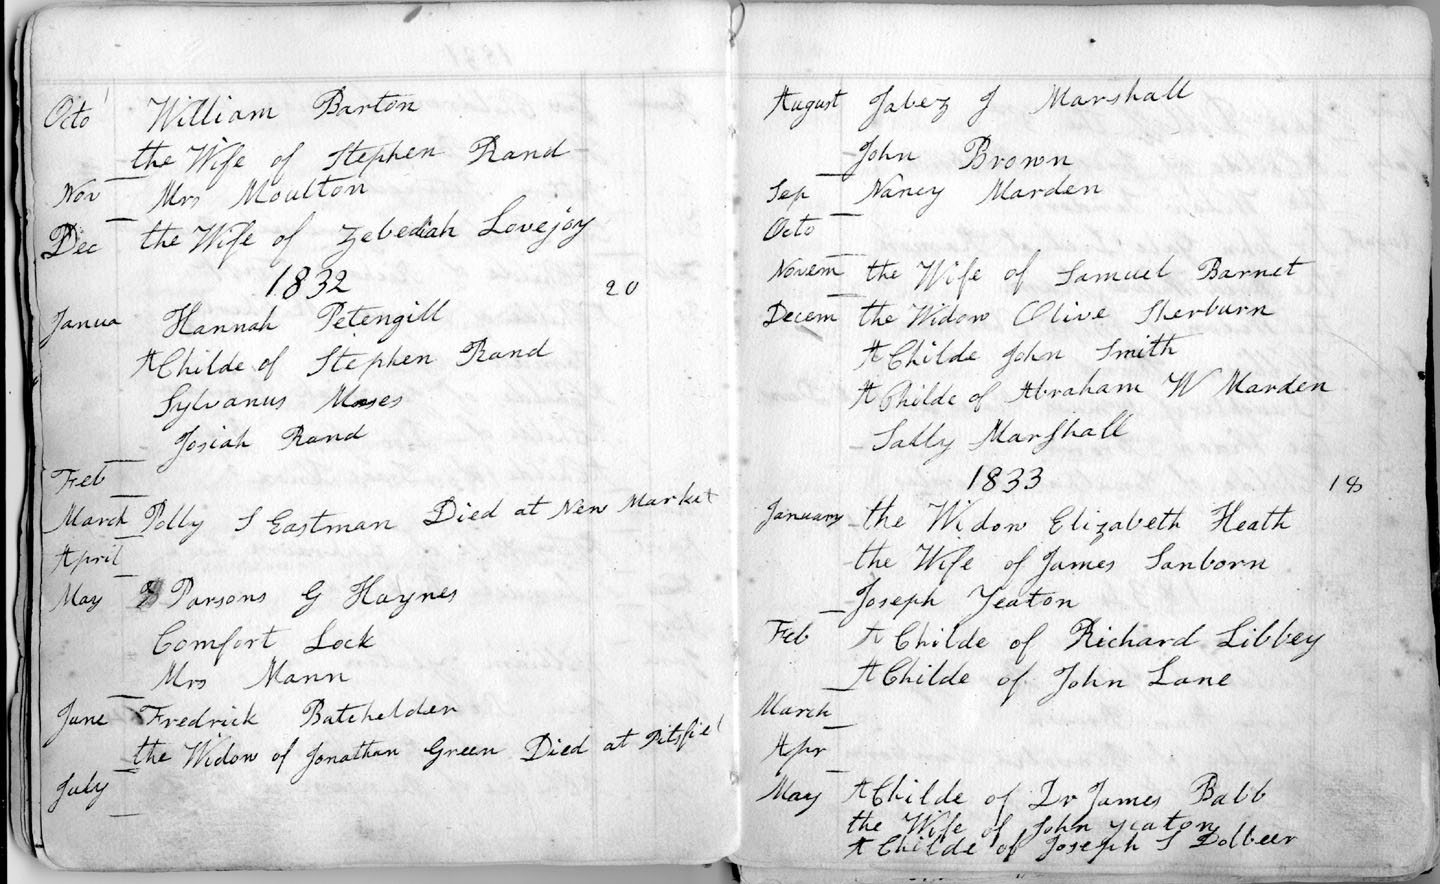 Octo William Barton
the Wife of Stephen Rand
Nov Mrs Moulton
Dec the Wife of Zebediah Lovejoy
1832 20
Janua Hannah Petengill
A Childe of Stephen Rand
Sylvanus Moses
Josiah Rand
Feb
March Polly S Eastman Died at New Market
April
May Parsons G Haynes
Comfort Lock
Mrs Mann
June Fredrick Batchelder
the Widow of Jonathan Green Died at Pitsfiel
July
August Jabez J Marshall
John Brown
Sep Nancy Marden
Octo
Novem the Wife of Samuel Barnet
Decem the Widow Olive Sherburn
A Childe John Smith
A Childe of Abraham W Marden
Sally Marshall
1833 18
January the Widow Elizabeth Heath
the Wife of James Sanborn
Joseph Yeaton
Feb A Childe of Richard Libbey
A Childe of John Lane
March
Apr
May A Childe of Dr James Babb
the Wife of John Yeaton
A Childe of Joseph S Dolbeer